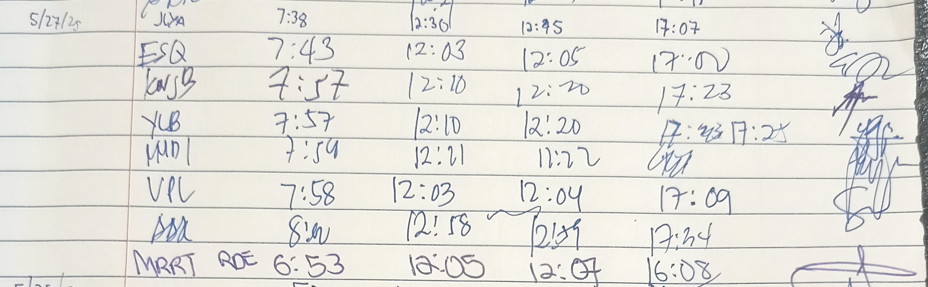 5/27/25 JLYA 7:38 12:30 12:45 17:07
ESQ 7:43 12:03 12:05 17:00
7:57 12:10 12:20 17:23
YLB 7:57 12:10 12:20 17:25
7:59 12:21 12:22
VPL 7:58 12:03 12:04 17:09
12:58 12:59 17:34
MRRT RDE 6:53 12:05 12:07 16:08